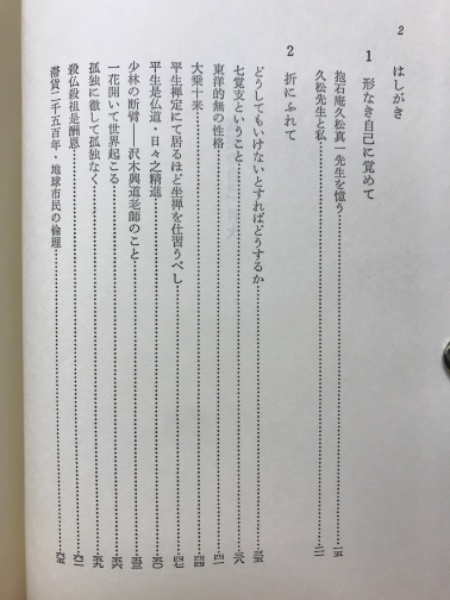 2
はしがき
1 形なき自己に覚めて
抱石庵久松真一先生を憶う……一五
久松先生と私……二一
2 折にふれて
どうしてもいけないとすればどうするか……三五
七覚支ということ……三八
東洋的無の性格……四一
大乗十来……四四
平生禅定にて居るほど坐禅を仕習うべし……四七
平生是仏道・日々之精進……五〇
少林の断臂――沢木興道老師のこと……五三
一花開いて世界起こる……五六
孤独に徹して孤独なく……五九
殺仏殺祖是酬恩……六二
潘貨二千五百年・地球市民の倫理……六五